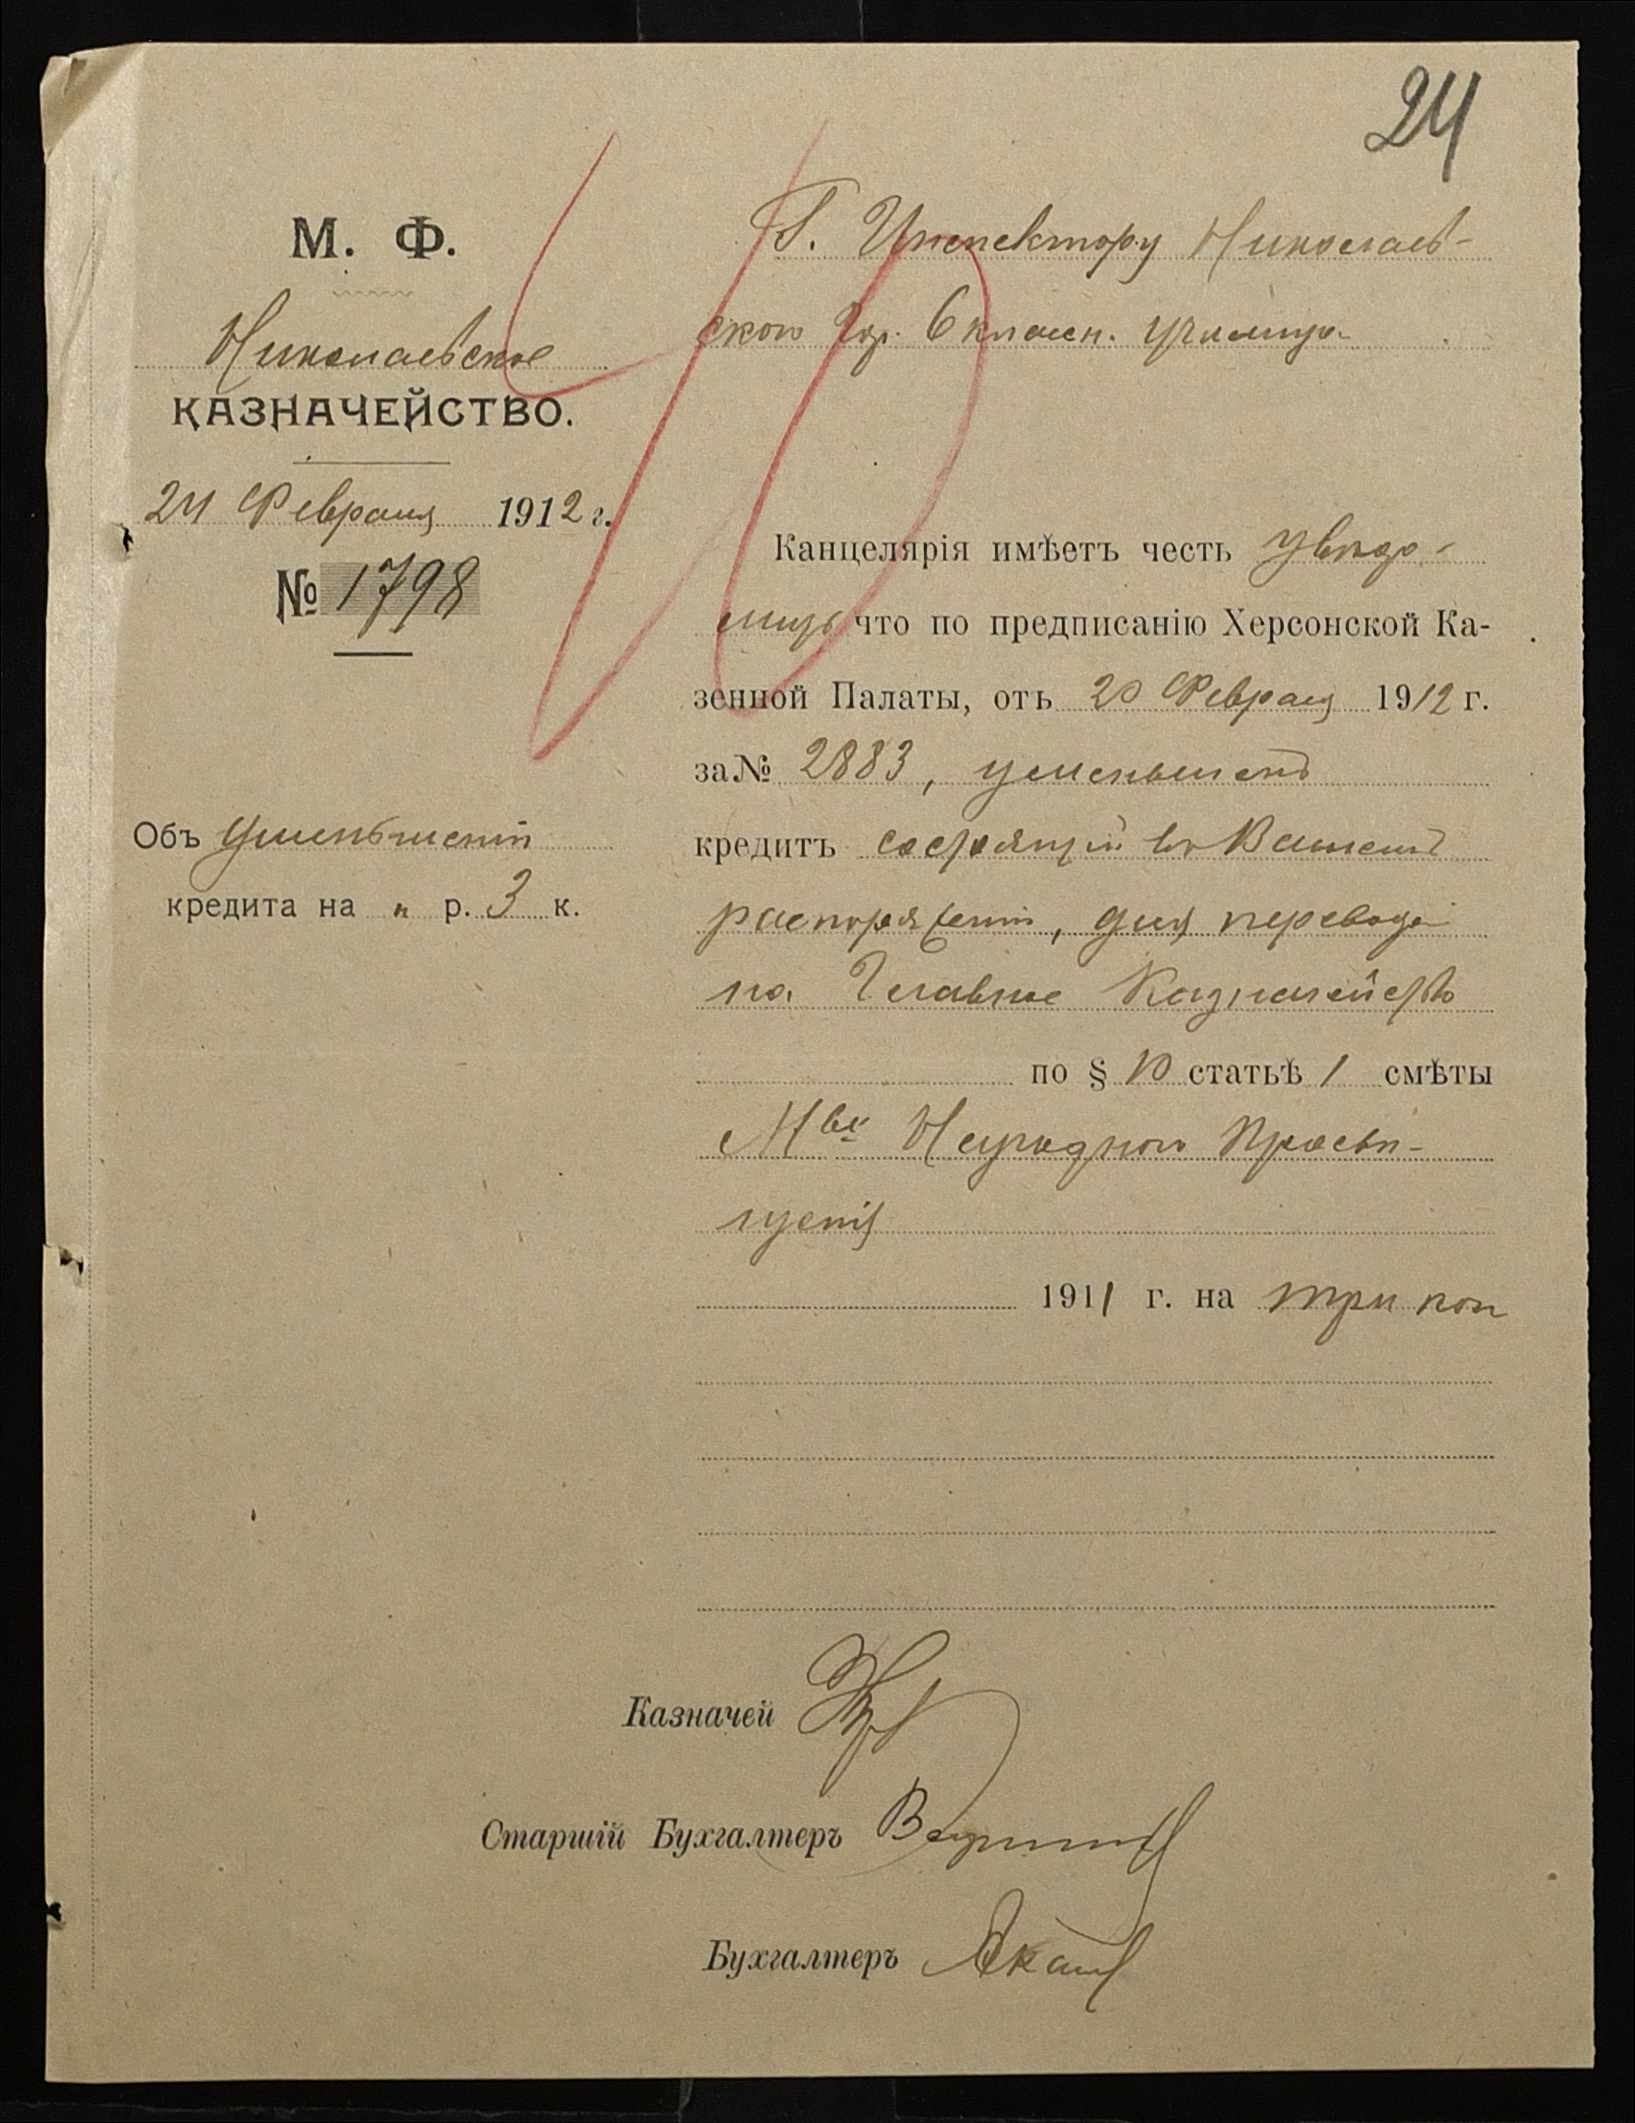 24
М. Ф.
Николаевское
КАЗНАЧЕЙСТВО.
24 Февраля 1912 г.
№ 1798
Объ уменьшеніи
кредита на " р. 3 к.
Г. Инспектору Николаев-
скаго Гор. 6 классн. училища
Канцелярія имѣетъ честь увѣдо-
мить что по предписанію Херсонской Ка-
зенной Палаты, отъ 20 Февраля 1912 г.
за № 2883, уменьшенъ
кредитъ состоящій въ Вашемъ
распоряженіи, для перевода
на Главное Казначейство
по § 10 статьѣ 1 смѣты
Мва Народного Просвѣ-
щенія
1911 г. на три коп
Казначей
Старшій Бухгалтеръ
Бухгалтеръ